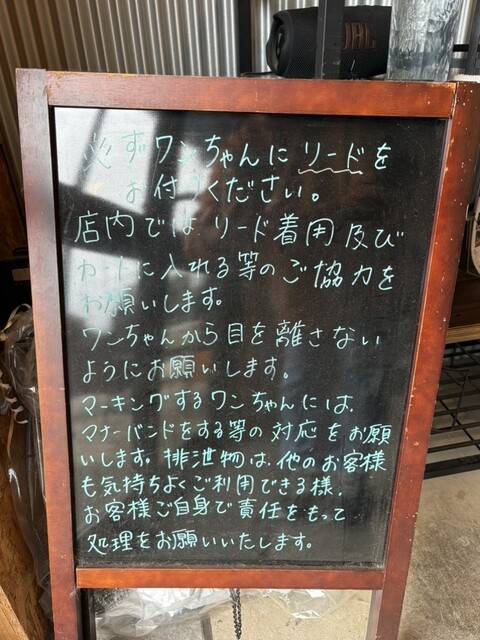 JBL
必ずワンちゃんにリードを
お付けください。
店内ではリード着用及び
カートに入れる等のご協力を
お願いします。
ワンちゃんから目を離さない
ようにお願いします。
マーキングするワンちゃんには、
マナーバンドをする等の対応をお願
いします。排泄物は、他のお客様
も気持ちよくご利用できる様、
お客様ご自身で責任をもって
処理をお願いいたします。